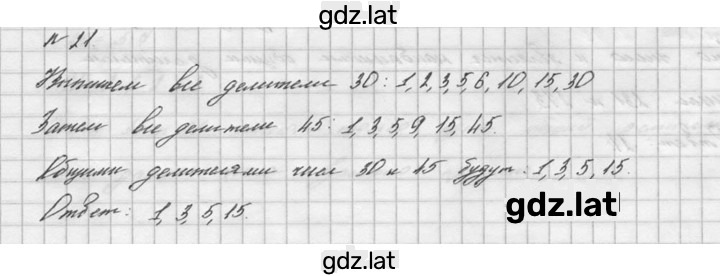 gdz.lat
№ 21.
Выпишем все делители 30: 1, 2, 3, 5, 6, 10, 15, 30
Затем все делители 45: 1, 3, 5, 9, 15, 45.
Общими делителями чисел 30 и 45 будут: 1, 3, 5, 15.
Ответ: 1, 3, 5, 15.
gdz.lat
gdz.lat